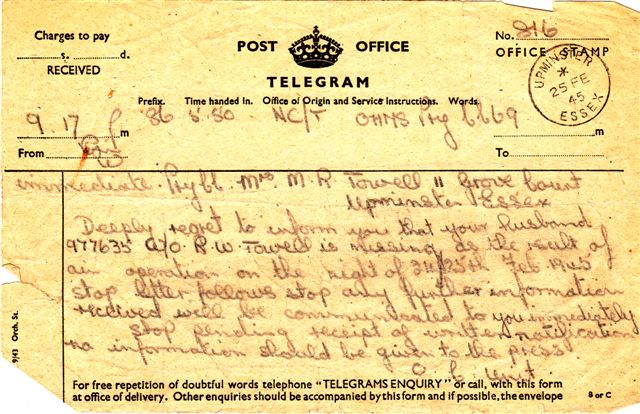 Charges to pay
s. d.
RECEIVED
POST OFFICE
TELEGRAM
No. 816
OFFICE STAMP
UPMINSTER
*
25 FE
45
ESSEX
Prefix. Time handed in. Office of Origin and Service Instructions. Words.
9.17 m
86 5.50 NC/T OHMS 6669
From
To m
immediate Mrs M. R. Towell 11 Grove Court
Upminster Essex
Deeply regret to inform you that your husband
977635 W/O. R W Towell is missing as the result of
air operation on the night of 24/25th Feb 1945
stop letter follows stop any further information
received will be communicated to you immediately
stop pending receipt of written notification
no information should be given to the press
O. C. Unit.
9/43 Orch, Ss.
For free repetition of doubtful words telephone "TELEGRAMS ENQUIRY" or call, with this form
at office of delivery. Other enquiries should be accompanied by this form and if possible, the envelope
B or C